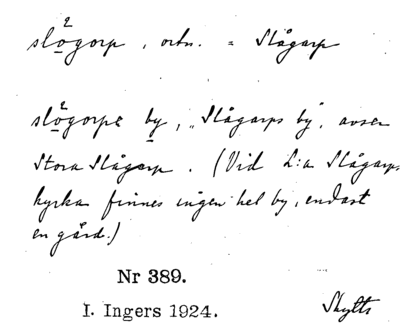 slögorp, ortn. = Slågarp
slögorps by, "Slågarps by", avser
Stora Slågarp. (Vid L:a Slågarps
kyrka finnes ingen hel by, endast
en gård.)
Nr 389.
I. Ingers 1924.
Skytts